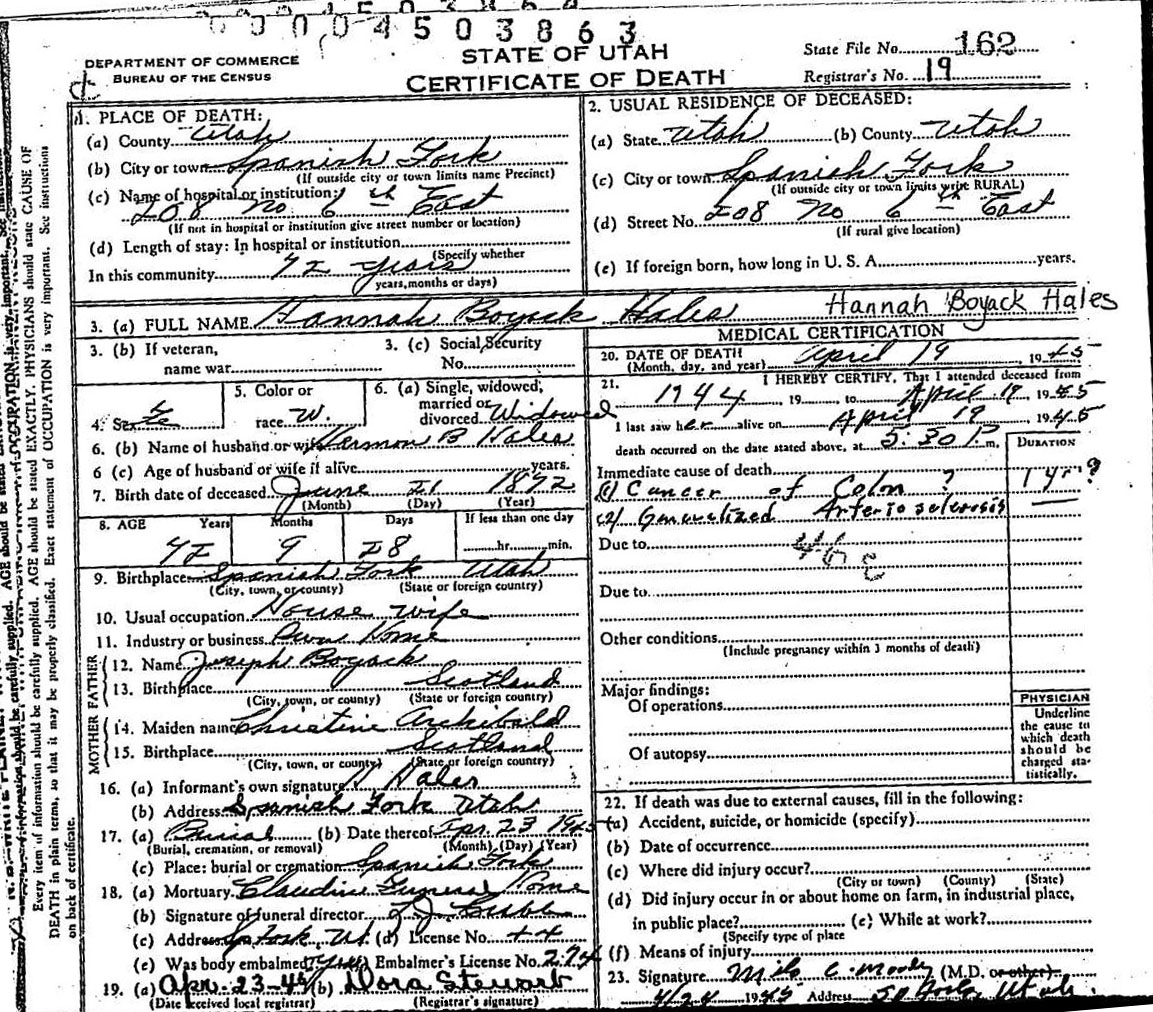 0004503863
STATE OF UTAH
CERTIFICATE OF DEATH
DEPARTMENT OF COMMERCE
BUREAU OF THE CENSUS
State File No. 162
Registrar's No. 19
1. PLACE OF DEATH:
(a) County Utah
(b) City or town Spanish Fork
(If outside city or town limits name Precinct)
(c) Name of hospital or institution:
208 No 6th East
(If not in hospital or institution give street number or location)
(d) Length of stay: In hospital or institution
(Specify whether
In this community 72 years
years, months or days)
2. USUAL RESIDENCE OF DECEASED:
(a) State Utah (b) County Utah
(c) City or town Spanish Fork
(If outside city or town limits write RURAL)
(d) Street No. 208 No 6th East
(If rural give location)
(e) If foreign born, how long in U. S. A. years.
3. (a) FULL NAME Hannah Boyack Hales Hannah Boyack Hales
3. (b) If veteran,
name war
3. (c) Social Security
No.
4. Sex
5. Color or
race W.
6. (a) Single, widowed,
married or
divorced Widowed
6. (b) Name of husband or wife Vernon B Hales
6 (c) Age of husband or wife if alive years.
7. Birth date of deceased June 21 1872
(Month) (Day) (Year)
8. AGE Years Months Days If less than one day
72 9 28 hr. min.
9. Birthplace Spanish Fork Utah
(City, town, or county) (State or foreign country)
10. Usual occupation House wife
11. Industry or business Own Home
FATHER
12. Name Joseph Boyack
13. Birthplace Scotland
(City, town, or county) (State or foreign country)
MOTHER
14. Maiden name Christine Archibald
15. Birthplace Scotland
(City, town, or county) (State or foreign country)
16. (a) Informant's own signature Hales
(b) Address Spanish Fork Utah
17. (a) Burial (b) Date thereof Apr. 23 1945
(Burial, cremation, or removal) (Month) (Day) (Year)
(c) Place: burial or cremation Spanish Fork
18. (a) Mortuary Claudin Funeral Home
(b) Signature of funeral director
(c) Address Sp Fork, Ut. (d) License No.
(e) Was body embalmed? yes Embalmer's License No. 274
19. (a) Apr. 23-45 (b) Dora Stewart
(Date received local registrar) (Registrar's signature)
MEDICAL CERTIFICATION
20. DATE OF DEATH April 19, 1945
(Month, day, and year)
21. I HEREBY CERTIFY, That I attended deceased from
1944, 19 to April 19, 1945
I last saw her alive on April 19 1945
death occurred on the date stated above, at 5:30 P m. DURATION
Immediate cause of death
(1) Cancer of Colon ? 1 yr ?
(2) Generalized Arteriosclerosis
Due to
46
Due to
Other conditions
(Include pregnancy within 3 months of death)
Major findings:
Of operations
Of autopsy
PHYSICIAN
Underline
the cause to
which death
should be
charged sta-
tistically.
22. If death was due to external causes, fill in the following:
(a) Accident, suicide, or homicide (specify)
(b) Date of occurrence
(c) Where did injury occur?
(City or town) (County) (State)
(d) Did injury occur in or about home on farm, in industrial place,
in public place? (e) While at work?
(Specify type of place
(f) Means of injury
23. Signature Milo C. Moody (M.D. or other)
4/24 1945 Address Sp Fork, Utah.
Every item of information should be carefully supplied. AGE should be stated EXACTLY. PHYSICIANS should state CAUSE OF
DEATH in plain terms, so that it may be properly classified. Exact statement of OCCUPATION is very important. See instructions
on back of certificate.